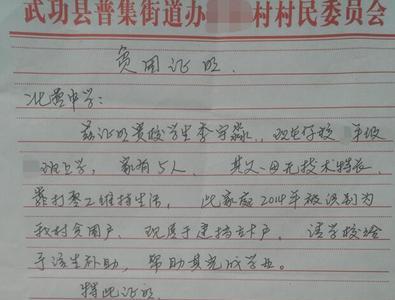 武功县普集街道办 村村民委员会
贫困证明.
北营中学:
兹证明贵校学生李宇淼,,现在你校 年级
班上学, 家有5人, 其父母无技术特长,
靠打零工维持生活, 此家庭2014年被识别为
我村贫困户, 现属于建档立卡户, 请学校给
予该生补助, 帮助其完成学业。
特此证明.